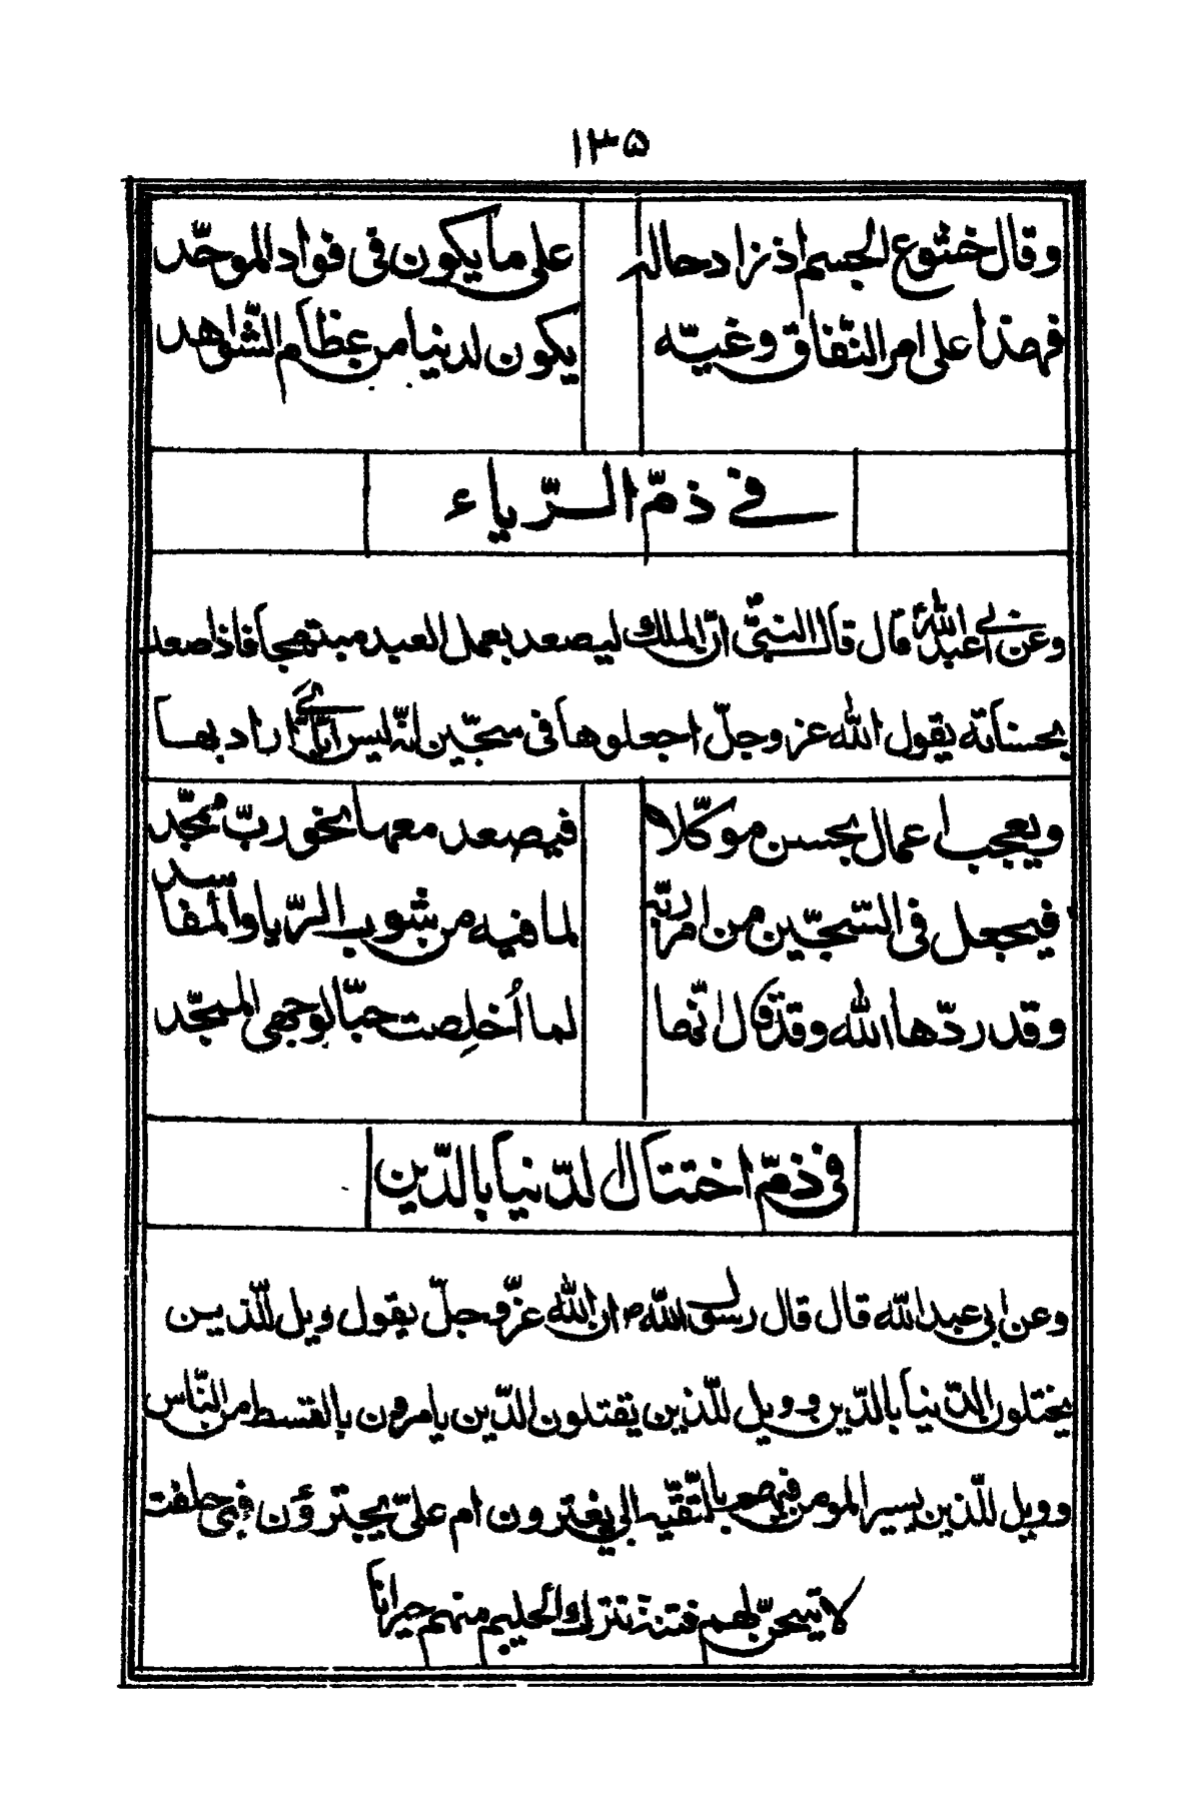 ١٣٥
وقال خشوع الجسم اذ زاد حاله على ما يكون فى فواد الموحّد
فهذا على امر النّفاق وغيّه يكون لدنيا من عظام الشّواهد
فى ذمّ الرّياء
وعن ابى عبد الله قال قال النبىّ انّ الملك ليصعد بعمل العبد مبتهجا فاذا صعد
بحسناته يقول الله عز وجلّ اجعلوها فى سجّين انّه ليس ايّاى اراد بها
ويعجب اعمال بحسن موكّلا فيصعد معها نحو ربّ ممجّد
فيجعل فى السّجّين من امر ربّه لما فيه من شوب الرّيا والمفاسد
وقد ردّها الله وقد قال انّها لما اُخلِصت حبّا لوجهى الممجّد
فى ذمّ اختتال الدّنيا بالدّين
وعن ابى عبد الله قال قال رسول الله ص ان الله عزّ وجلّ يقول ويل للّذين
يختلون الدّنيا بالدّين وويل للّذين يقتلون الّذين يامرون بالقسط من النّاس
وويل للّذين يسير المومن فيهم بالتّقيّه الى يغترون ام علىّ يجترؤن فبى حلفت
لاتيحنّ لهم فتنة تترك الحليم منهم حيرانا